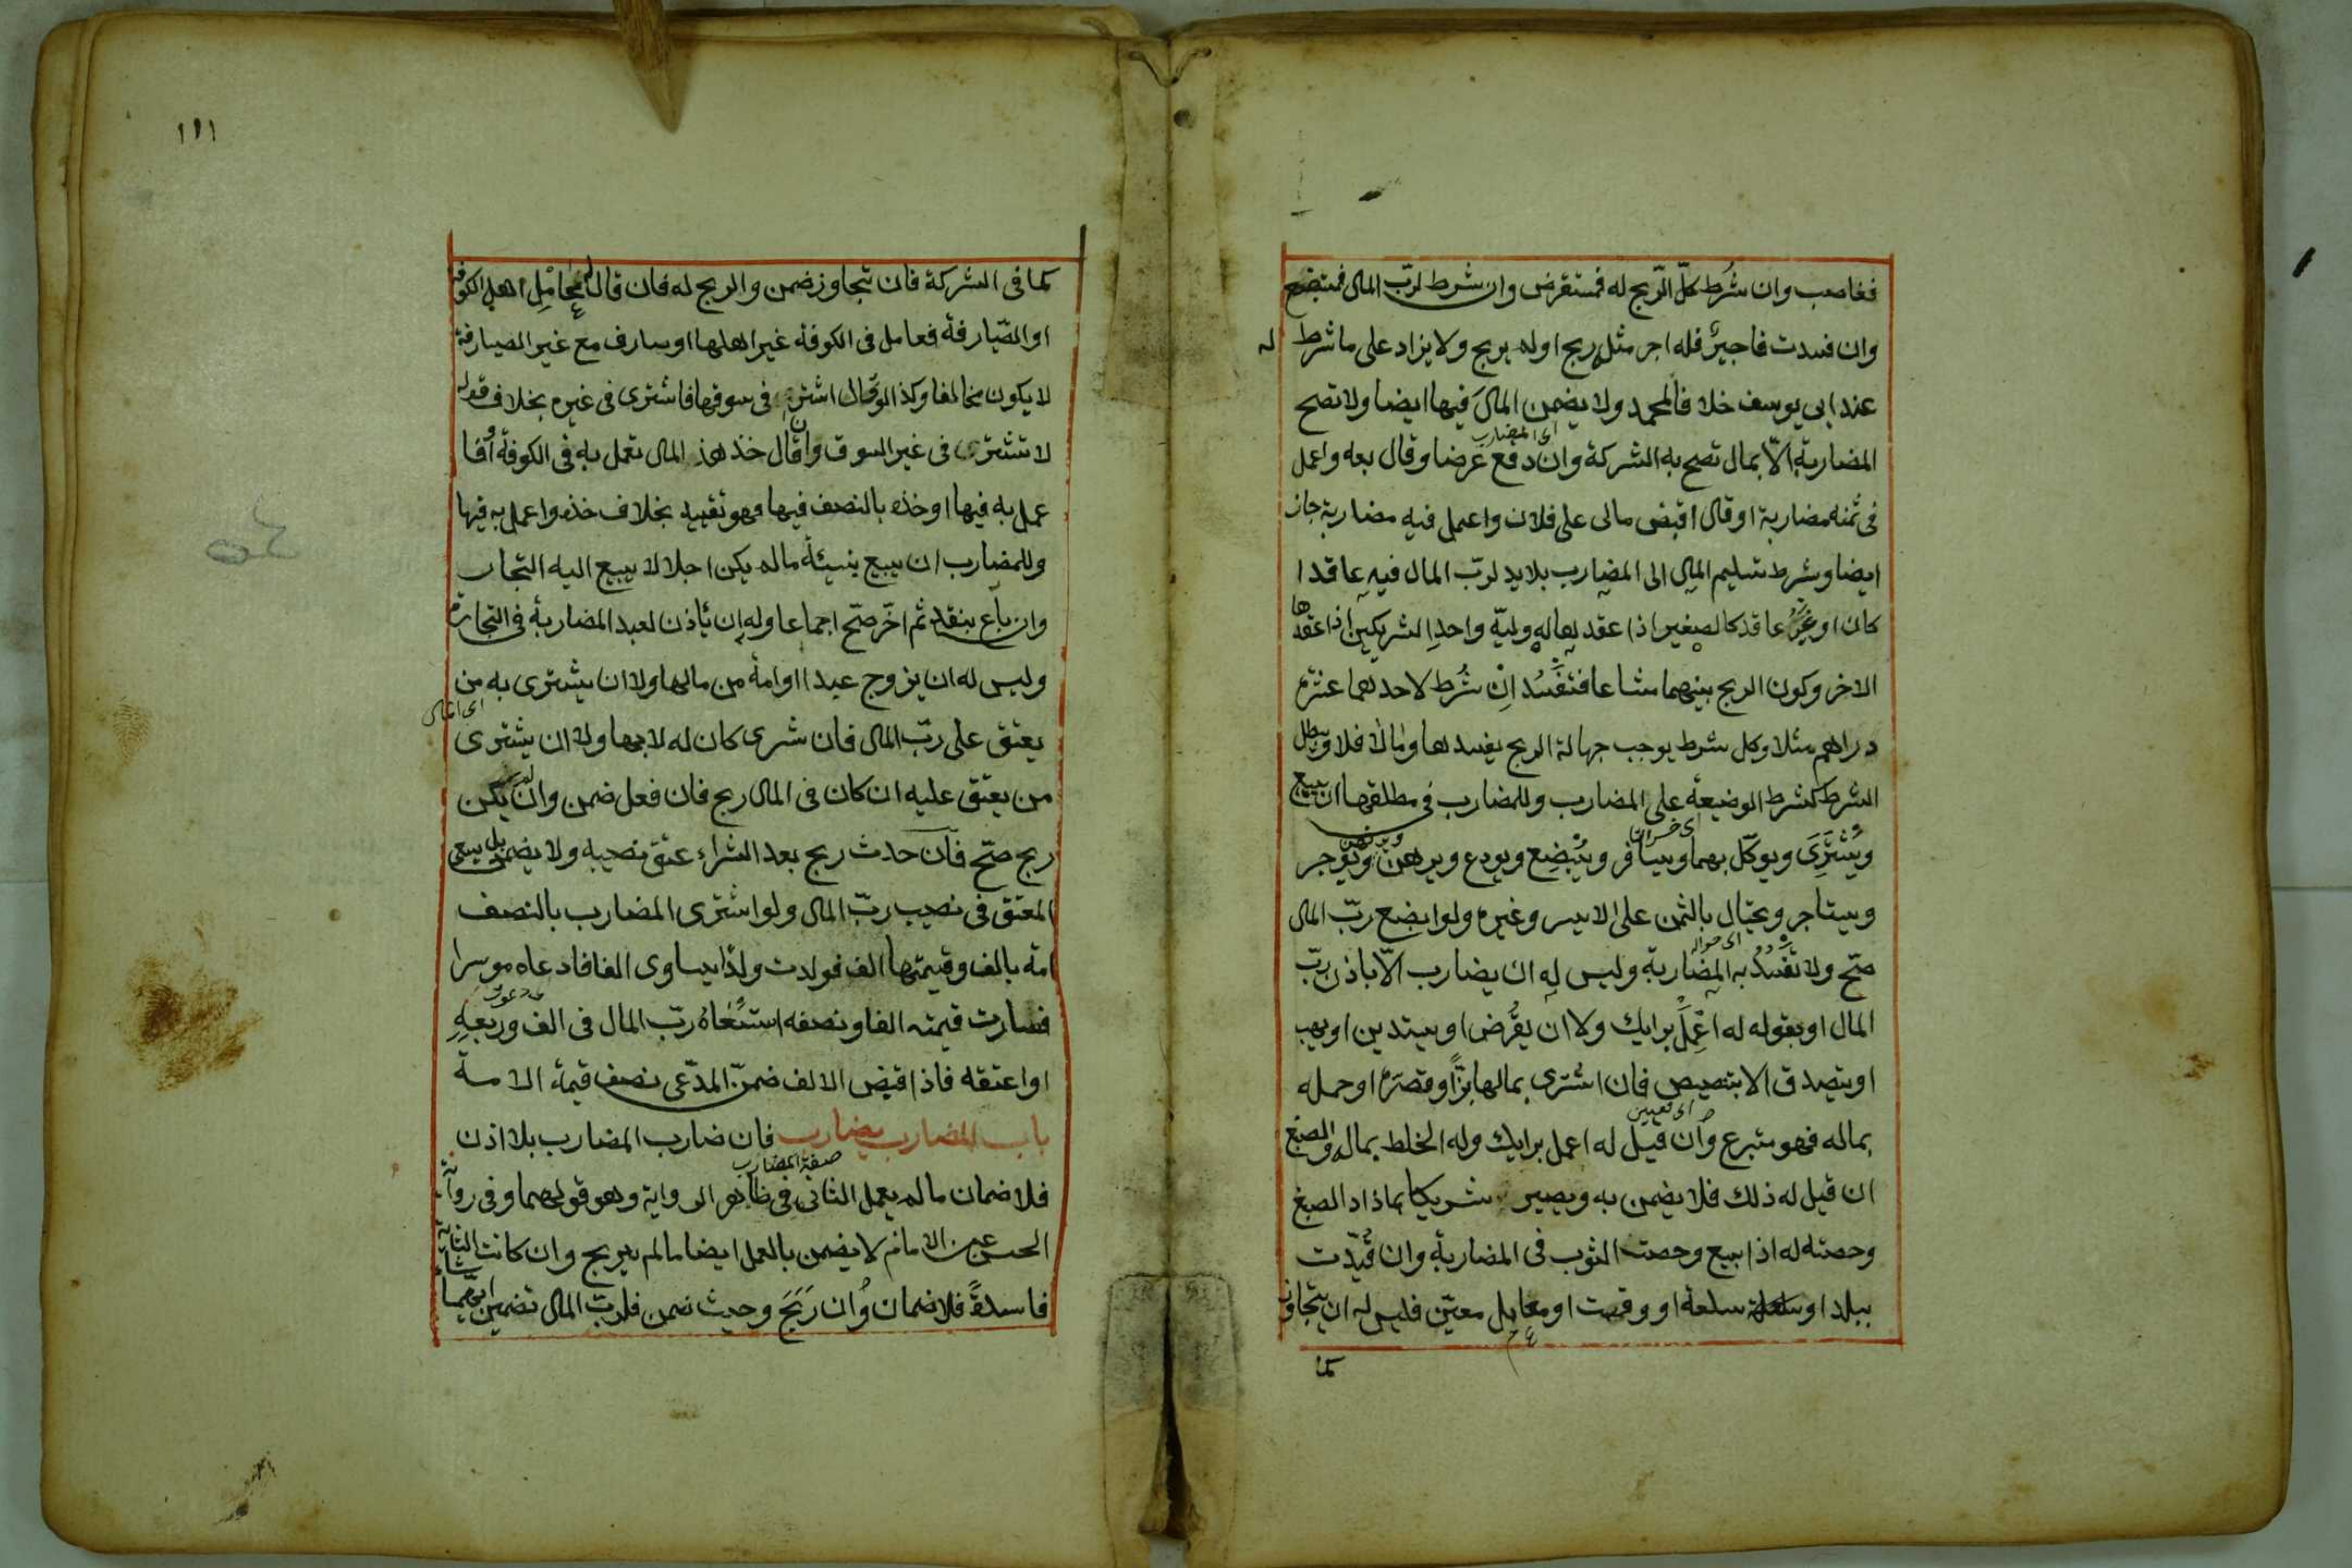 فغاصب وان شُرط كلّ الرّبح له فمستقرض وان شرط لربّ المال فمستبضع
وان فسدت فاجيرٌ فله اجر مثله ربح او لم يربح ولا يزاد على ما شرط له
عند ابى يوسف خلافا لمحمد ولا يضمن المالَ فيها ايضا ولا تصح
اى المضارب
المضاربة الّا بمال تصح به الشركة وان دفع عَرضا وقال بعه واعمل
فى ثمنه مضاربة او قال اقبض مالى على فلان واعمل فيه مضاربة جاز
ايضا وشرط تسليم المال الى المضارب بلا يد لربّ المال فيه عاقدا
كان او غيرُ عاقد كالصغير اذا عقدها له وليّه واحدِ الشريكين اذا عقدها
الاخر وكون الربح بينهما مشاعا فتفسُد اِنْ شُرط لاحدهما عشرة
دراهم مثلا وكل شرط يوجب جهالة الربح يفسدها ومالا فلا ويبطل
الشرط كشرط الوضيعة على المضارب وللمضارب فى مطلقها ان يبيع
اى خسران
ويشترى ويوكّل بهما ويسافر ويُبْضِع ويودع ويرهن ويرتهن ويُوجر
ويستاجر ويحتال بالثمن على الايسر وغيره ولو ابضع ربّ المال
اى حواله
صحّ ولا تفسُدُ به المضاربة وليس له ان يضارب الّا باذن ربّ
المال او بقوله له اعْمِلْ برايك ولا ان يقرض او يستدين او يهب
او يتصدق الا بتنصيص فان اشترى بمالها بَزّاً وقصَره او حمله
اى تعيين
بماله فهو متبرع وان قيل له اعمل برايك وله الخلط بماله والصبغ
ان قيل له ذلك فلا يضمن به ويصير شريكا بماذاد الصبغ
وحصته له اذا بيع وحصت الثوب فى المضاربة وان قُيّدت
ببلد او سلعة او وقت او معامل معيّن فليس له ان يتجاوز
كما
١١١
كما فى الشركة فان تجاوز ضمن والربح له فان قال له عامِل اهل الكوفة
او الصّيارفة فعامل فى الكوفة غير اهلها او صارف مع غير الصيارفة
لا يكون مخالفا وكذا لو قال اشتر فى سوقها فاشترى فى غيره بخلاف قوله
لا تشترى فى غير السوق وان قال خذ هذ المال تعمل به فى الكوفة او فا
عمل به فيها او خذه بالنصف فيها فهو تقييد بخلاف خذه واعمل به فيها
وللمضارب ان يبيع بنسيئة ما لم يكن اجلا لا يبيع اليه التجار
وان باع بنقد ثم اخّر صحّ اجماعا وله ان ياذن لعبد المضاربة فى التجارة
وليس له ان يزوج عبدا او امة من مالها ولا ان يشترى به من
اى المال
يعتق على ربّ المال فان شرى كان له لا لها ولا ان يشترى
من يعتق عليه ان كان فى المال ربح فان فعل ضمن وان لم يكن
ربح صحّ فان حدث ربح بعد الشراء عتق نصيبه ولا يضمن بل يسعى
المعتق فى نصيب ربّ المال ولو اشترى المضارب بالنصف
امة بالف وقيمتها الف فولدت ولدًا يساوى الفا فادعاه موسرا
فصارت قيمته الفا ونصفه استسعاهُ ربّ المال فى الف وربعهِ
او اعتقه فاذا قبض الالف ضمنّ المدّعى نصف قيمة الامة
باب المضارب يضارب فان ضارب المضارب بلا اذن
صفة المضارب
فلا ضمان ما لم يعمل الثانى فى ظاهر الرواية وهو قولهما وفى رواية
الحسن عن الامام لا يضمن بالعمل ايضا ما لم يربح وان كانت الثانية
فاسدةً فلا ضمان واُن رَبحَ وحيث ضمن فلربّ المال تضمين ايهما شاء